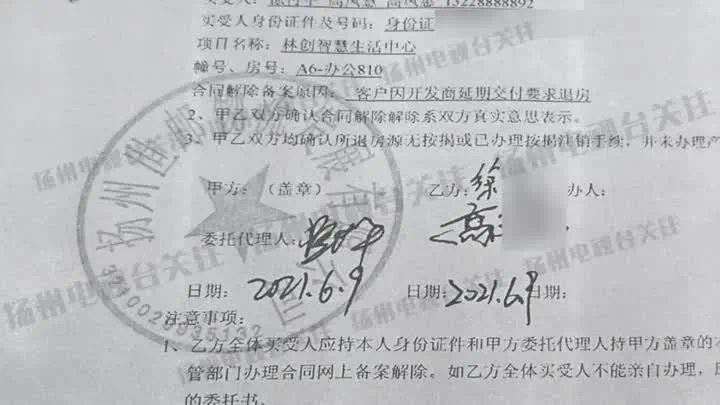 买受人身份证件及号码：身份证
项目名称：林创智慧生活中心
幢号、房号：A6-办公810
合同解除备案原因： 客户因开发商延期交付要求退房
2、甲乙双方确认合同解除解除系双方真实意思表示。
3、甲乙双方均确认所退房源无按揭或已办理按揭注销手续，并未办理产
甲方：（盖章） 乙方：徐 办人：
委托代理人：
日期：2021.6.9 日期：2021.6.9 日期：
注意事项：
1、乙方全体买受人应持本人身份证件和甲方委托代理人持甲方盖章的
管部门办理合同网上备案解除。如乙方全体买受人不能亲自办理，
的委托书。
扬州 有限公司
3210020935132
扬州电视台关注
扬州电视台关注
扬州电视台关注
扬州电视台关注
扬州电视台关注
扬州电视台关注